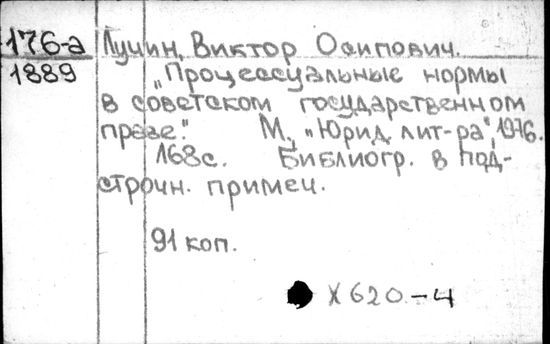 176-а Лучин, Виктор Осипович.
1889 „Процессуальные нормы
в советском государственном
праве". М., „Юрид. лит-ра", 1976.
168с. Библиогр. в под-
строчн. примеч.
91 коп.
X620-4